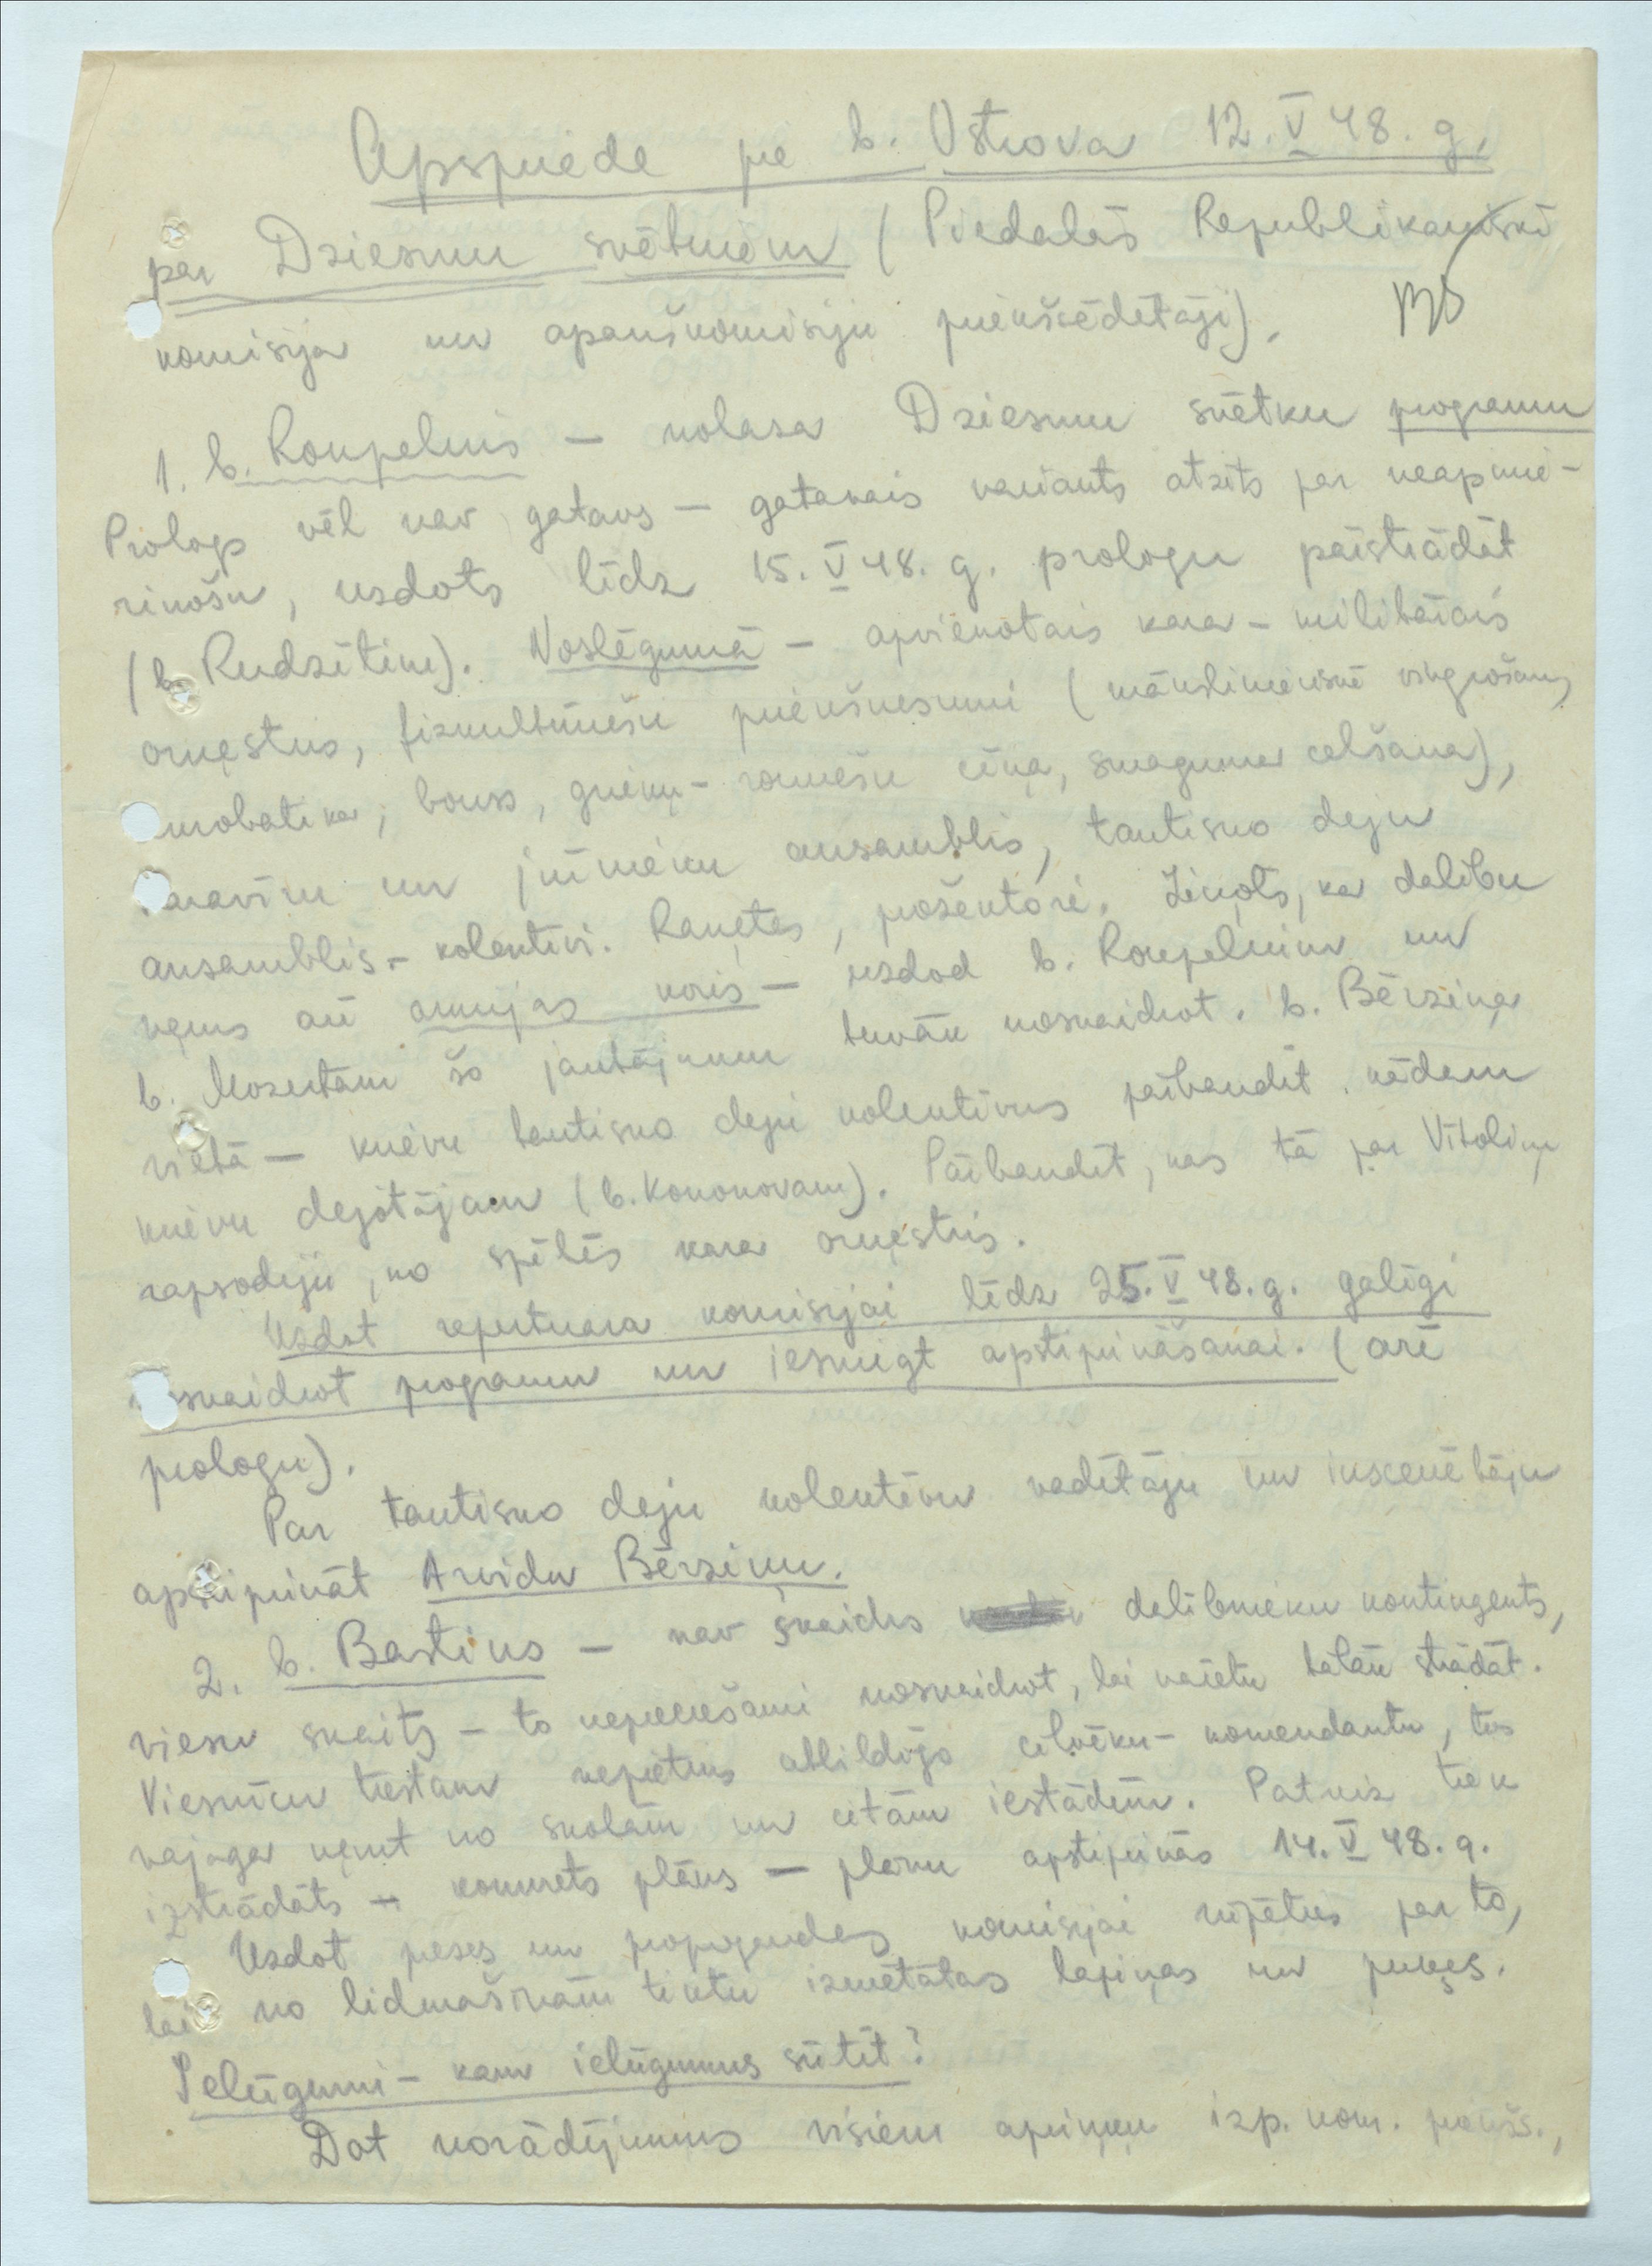 Apspriede pie b. Ostrova 12. V 48. g.
par Dziesmu svētkiem (Piedalās Republikaniskā
komisija un apakškomisiju priekšsēdētāji).
1. b. Roņpelnis – nolasa Dziesmu svētku programmu
Prologs vēl nav gatavs – gatavais variants atzīts par neapmie-
rinošu, uzdots līdz 15. V 48. g. prologu pārstrādāt
(b. Rudzītim). Noslēgumā – apvienotais kara-militārais
orķestris, fizkultūriešu priekšnesumi (mākslinieciskā vingrošana,
akrobatika, bokss, grieķu-romiešu cīņa, smagumu celšana),
karavīru un jūrnieku ansamblis, tautisko deju
ansamblis - kolektīvi. Raķetes, prožektori. Ziņots, ka dalību
ņems arī armijas koris – uzdod b. Roņpelnim un
b. Mozertam šo jautājumu tuvāk noskaidrot. b. Bērziņa
vietā – krievu tautisko deju kolektīvus pārbaudīt kādam
krievu dejotājam (b. Kononovam). Pārbaudīt, kas tā par Vītoliņa
rapsodiju, ko spēlēs kara orķestris.
Uzdot repertuara komisijai līdz 25. V 48. g. galīgi
noskaidrot programmu un iesniegt apstiprināšanai. (arī
prologu).
Par tautisko deju kolektīvu vadītāju un inscenētāju
apstiprināt Arvidu Bērziņu.
2. b. Bastins – nav skaidrs dalībnieku kontingents,
viesu skaits – to nepieciešami noskaidrot, lai varētu tālāk strādāt.
Viesnīcu trestam nepietiks atbildīgo cilvēku - komendantu, tos
vajaga ņemt no skolām un citām iestādēm. Patreiz tiek
izstrādāts – konkrēts plāns – plānu apstiprinās 14. V 48. g.
Uzdot preses un propogandas komisijai rūpēties par to,
lai no lidmašīnām tiktu izmētātas lapiņas un puķes.
Ielūgumi – kam ielūgumus sūtīt?
Dot norādījumus visiem apriņķu izp. kom. priekšs.,